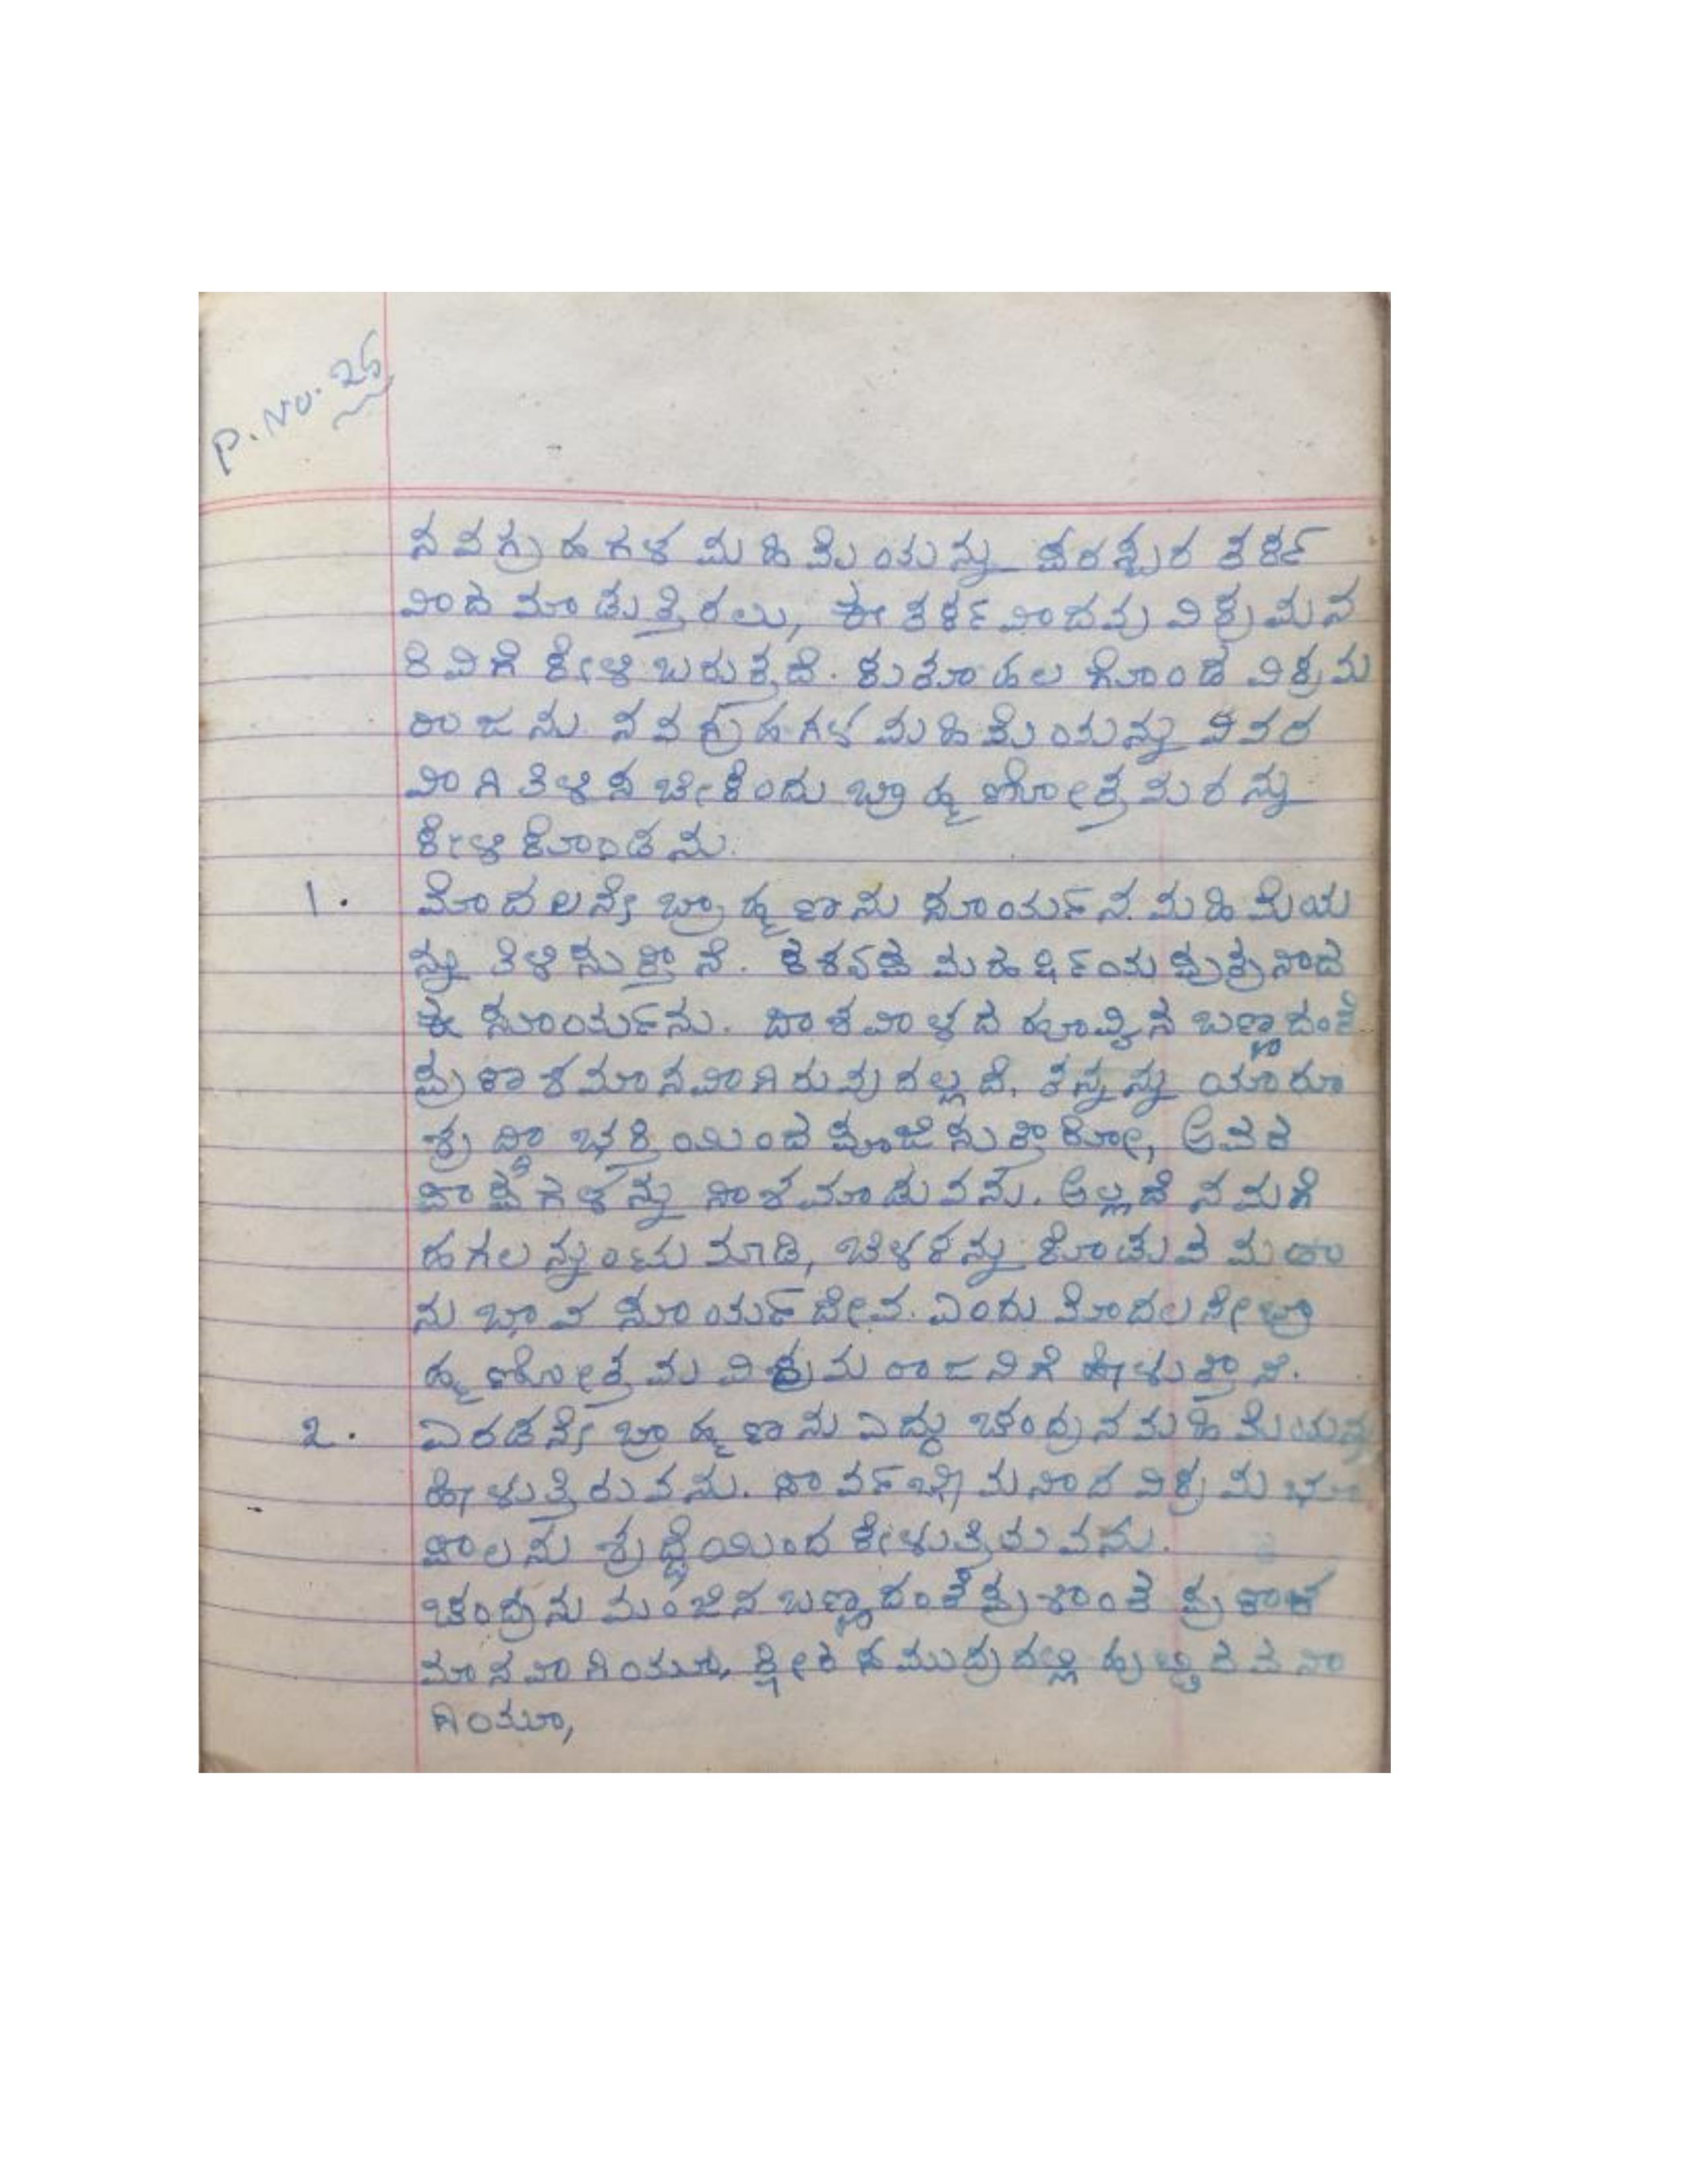 P.No. 25
ನವಗ್ರಹಗಳ ಮಹಿಮೆಯನ್ನು ಪರಸ್ಪರ ತರ್ಕ
ವಾದ ಮಾಡುತ್ತಿರಲು, ಈ ತರ್ಕವಾದವು ವಿಕ್ರಮನ
ಕಿವಿಗೆ ಕೇಳಿ ಬರುತ್ತದೆ. ಕುತೂಹಲ ಗೊಂಡ ವಿಕ್ರಮ
ರಾಜನು ನವಗ್ರಹಗಳ ಮಹಿಮೆಯನ್ನು ವಿವರ
ವಾಗಿ ತಿಳಿಸ ಬೇಕೆಂದು ಬ್ರಾಹ್ಮಣೋತ್ತಮರನ್ನು
ಕೇಳಿಕೊಂಡನು.
1. ಮೊದಲನೇ ಬ್ರಾಹ್ಮಣನು ಸೂರ್ಯನ ಮಹಿಮೆಯ
ನ್ನು ತಿಳಿಸುತ್ತಾನೆ. ಕಶ್ಯಪ ಮಹರ್ಷಿಯ ಪುತ್ರನಾದ
ಈ ಸೂರ್ಯನು. ದಾಶವಾಳದ ಹೂವ್ವಿನ ಬಣ್ಣದಂತೆ
ಪ್ರಕಾಶಮಾನವಾಗಿರುವುದಲ್ಲದೆ, ತನ್ನನ್ನು ಯಾರೂ
ಶ್ರದ್ಧಾ ಭಕ್ತಿಯಿಂದ ಪೂಜಿಸುತ್ತಾರೋ, ಅವರ
ಪಾಪಗಳನ್ನು ನಾಶಮಾಡುವನು. ಅಲ್ಲದೆ ನಮಗೆ
ಹಗಲನ್ನುಂಟು ಮಾಡಿ, ಬೆಳಕನ್ನು ಕೊಡುವ ಮಹಾ
ನುಭಾವ ಸೂರ್ಯದೇವ. ಎಂದು ಮೊದಲನೇ ಬ್ರಾ
ಹ್ಮಣೋತ್ತಮ ವಿಕ್ರಮ ರಾಜನಿಗೆ ಹೇಳುತ್ತಾನೆ.
೩. ಎರಡನೇ ಬ್ರಾಹ್ಮಣನು ಎದ್ದು ಚಂದ್ರನ ಮಹಿಮೆಯನ್ನು
ಹೇಳುತ್ತಿರುವನು. ಸಾರ್ವಭೌಮನಾದ ವಿಕ್ರಮ ಭೂ
ಪಾಲನು ಶ್ರದ್ಧೆಯಿಂದ ಕೇಳುತ್ತಿರುವನು.
ಚಂದ್ರನು ಮಂಜಿನ ಬಣ್ಣದಂತೆ ಪ್ರಶಾಂತ ಪ್ರಕಾಶ
ಮಾನವಾಗಿಯೂ, ಕ್ಷೀರ ಸಮುದ್ರದಲ್ಲಿ ಹುಟ್ಟಿದವನಾ
ಗಿಯೂ,